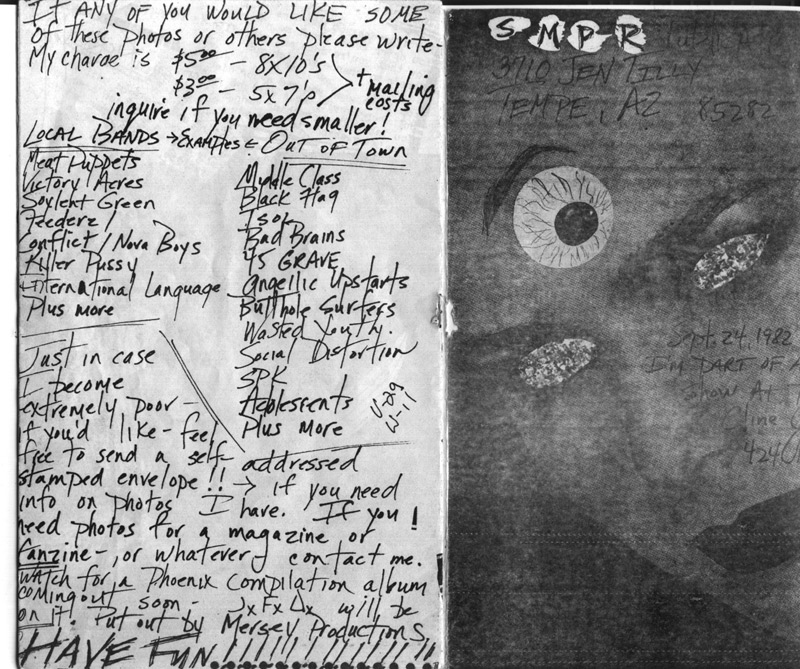 If any of you would like some
of these photos or others please write-
My charge is $5.00 - 8x10's
$3.00 - 5x7's
+ mailing costs
inquire if you need smaller!
Local Bands → Examples ← Out of Town
Meat Puppets
Victory Acres
Soylent Green
Feederz
Conflict / Nova Boys
Killer Pussy
International Language
Plus more
Middle Class
Black Flag
TSOL
Bad Brains
45 GRAVE
Angelic Upstarts
Butthole Surfers
Wasted Youth.
Social Distortion
SPK
Adolescents
Plus more
Just in case
I become
extremely poor-
if you'd like - feel
free to send a self addressed
stamped envelope!! → if you need
info on photos I have. If you
need photos for a magazine or
fanzine-, or whatever contact me.
Watch for a Phoenix compilation album
coming out soon - JxFxAx will be
on it! Put out by Mersey Productions.
HAVE FUN!!!!!!!!!!!!!
SMPR
3710 JEN TILLY
TEMPE, AZ 85282
Sept. 24, 1982
I'm part of a
show At
line
424